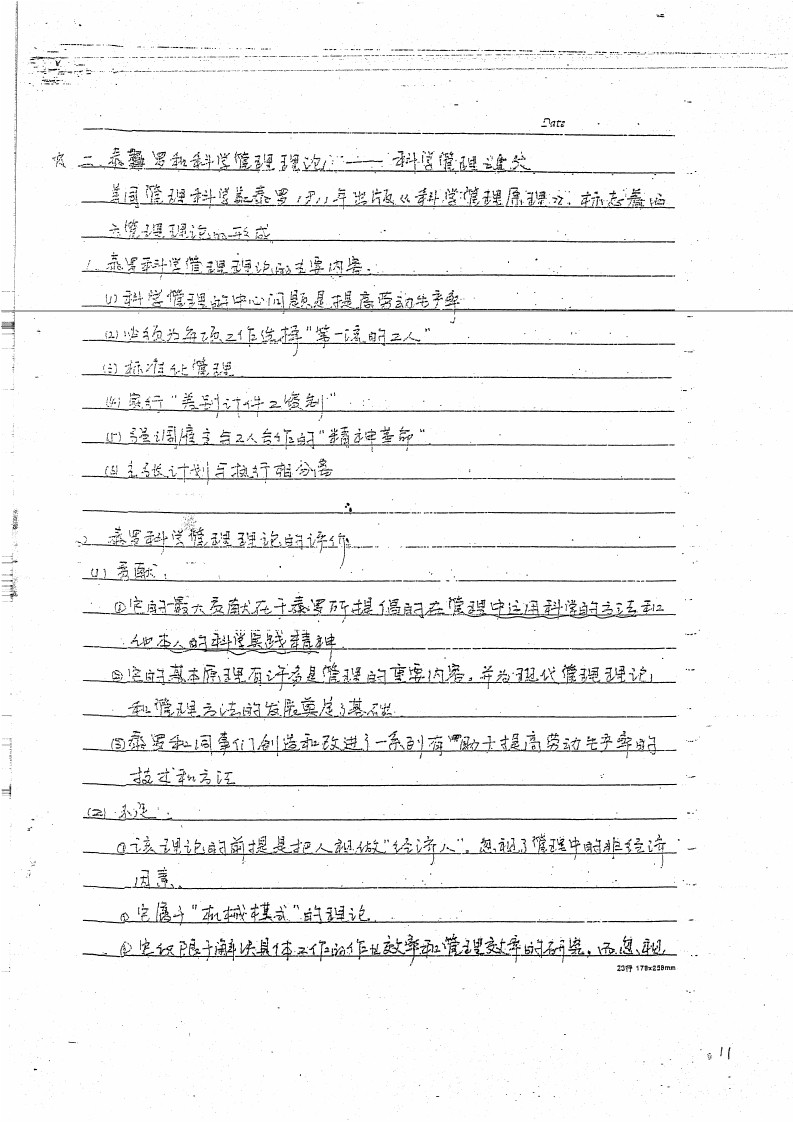 Date
二、泰罗和科学管理理论 —— 科学管理之父
美国管理科学家泰罗1911年出版《科学管理原理》,标志着西
方管理理论的形成
1. 泰罗科学管理理论的主要内容:
(1) 科学管理的中心问题是提高劳动生产率
(2) 必须为每项工作选择“第一流的工人”
(3) 标准化管理
(4) 实行“差别计件工资制”
(5) 强调雇主与工人合作的“精神革命”
(6) 主张计划与执行相分离
2 泰罗科学管理理论的评价
(1) 贡献:
①它的最大贡献在于泰罗所提倡的在管理中运用科学的方法和
他本人的科学实践精神
②它的基本原理有许多是管理的重要内容,并为现代管理理论
和管理方法的发展奠定了基础
③泰罗和同事们创造和改进了一系列有助于提高劳动生产率的
技术和方法
(2) 不足:
①该理论的前提是把人视做“经济人”。忽视了管理中的非经济
因素、
②它属于“机械模式”的理论
③它仅限于解决具体工作的作业效率和管理效率的研究,而忽视
23行 179x259mm
11